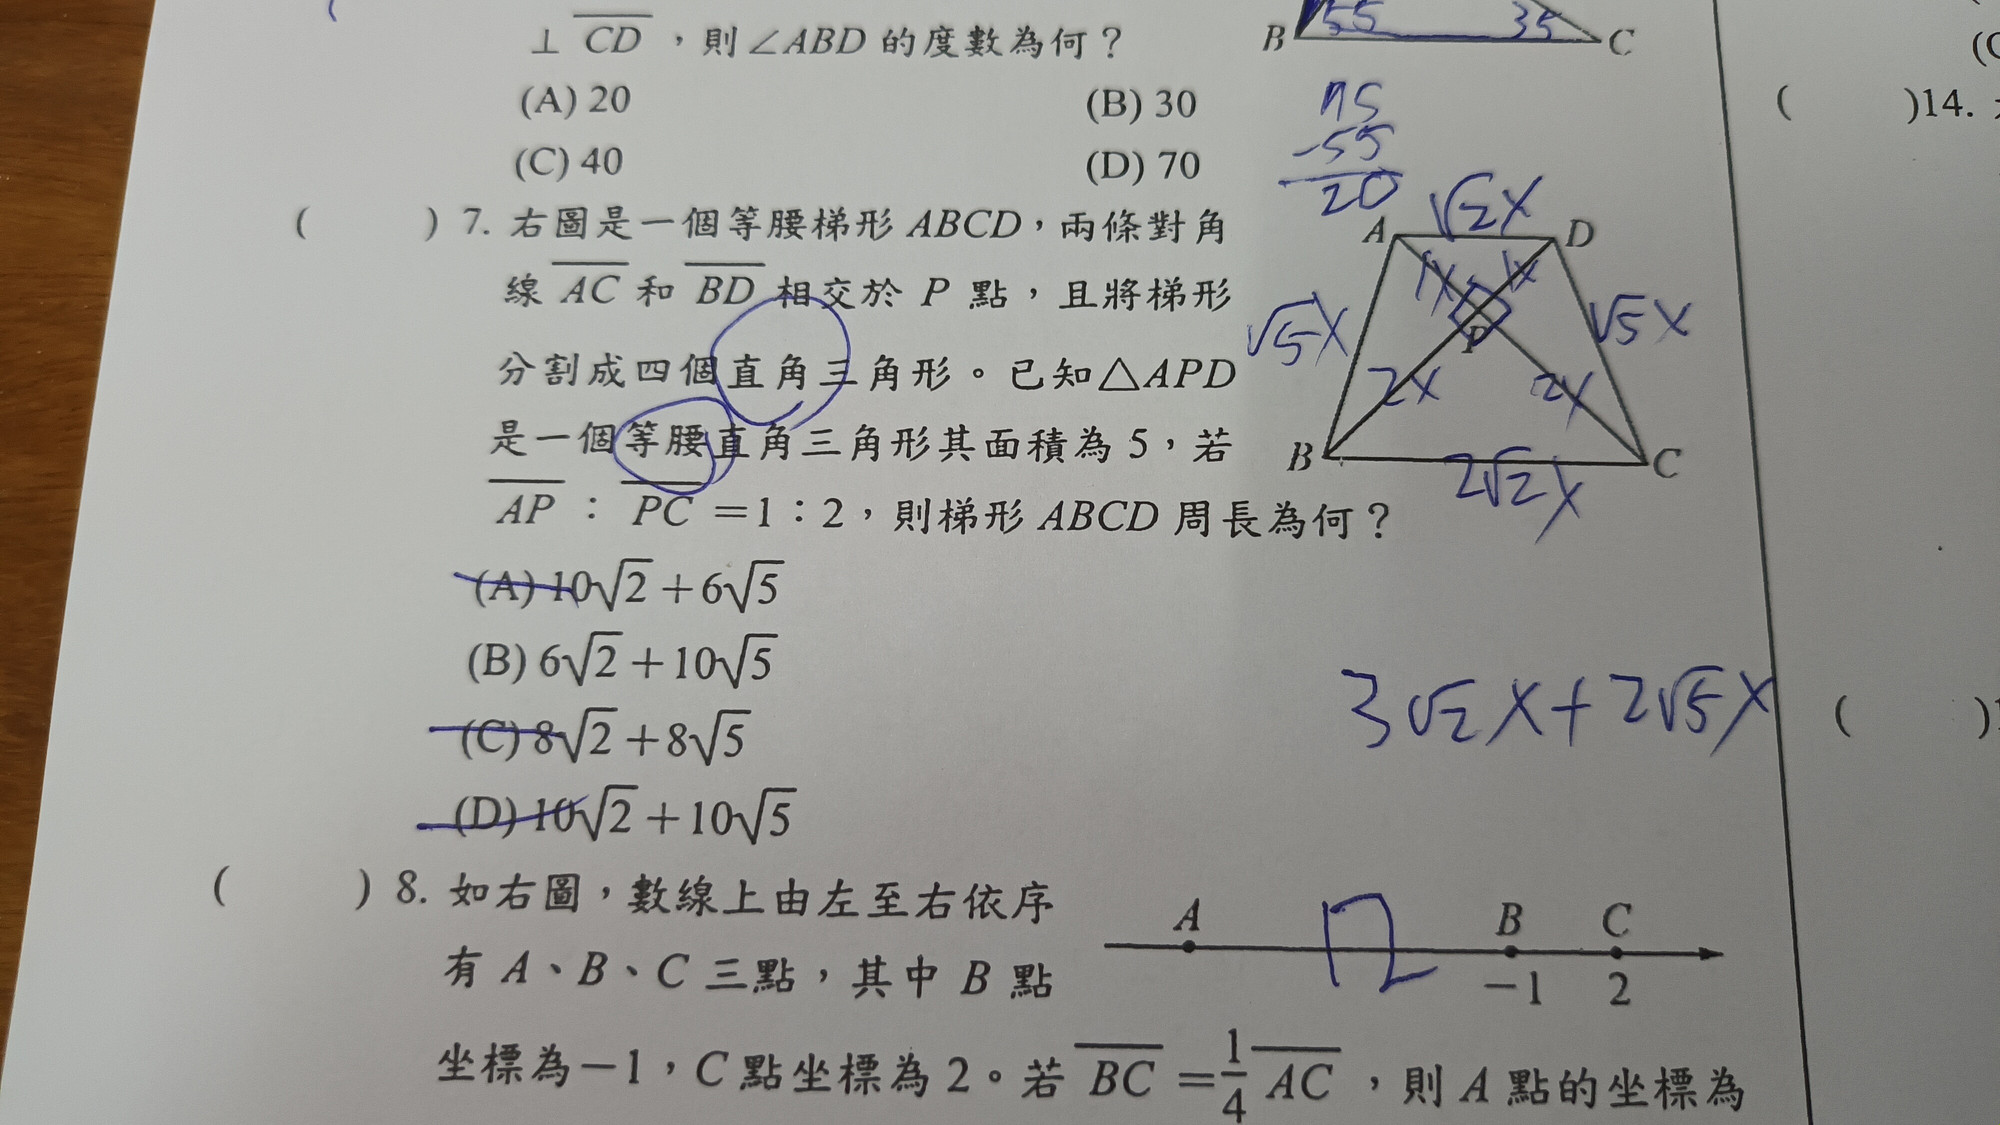 ⊥ CD，則∠ABD 的度數為何？
B 55 35 C
(A) 20 (B) 30
(C) 40 (D) 70
75
-55
20
( ) 7. 右圖是一個等腰梯形 ABCD，兩條對角
線 AC 和 BD 相交於 P 點，且將梯形
分割成四個直角三角形。已知△APD
是一個等腰直角三角形其面積為 5，若
AP：PC＝1：2，則梯形 ABCD 周長為何？
√2x
A D
1x 1x
√5x √5x
P
2x 2x
B C
2√2x
(A) 10√2＋6√5
(B) 6√2＋10√5
(C) 8√2＋8√5
(D) 10√2＋10√5
3√2x+2√5x
( ) 8. 如右圖，數線上由左至右依序
有 A、B、C 三點，其中 B 點
坐標為－1，C 點坐標為 2。若 BC＝1/4 AC，則 A 點的坐標為
A B C
－1 2
( )14.
(
( )1